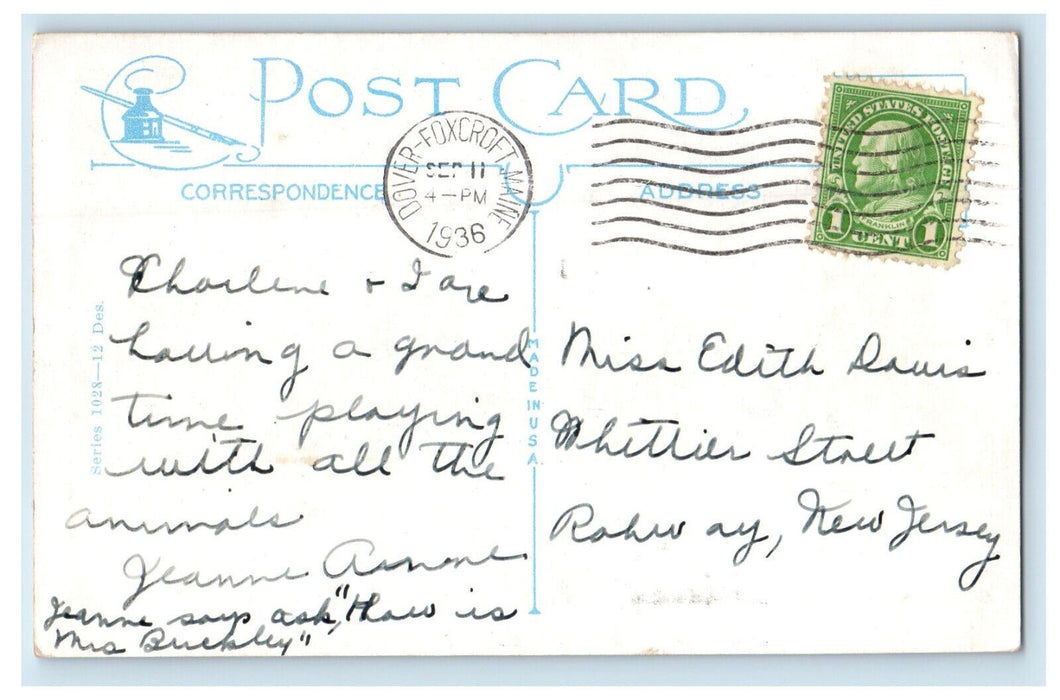 POST CARD
CORRESPONDENCE
ADDRESS
DOVER-FOXCROFT MAINE
SEP 11
4-PM
1936
UNITED STATES POSTAGE
FRANKLIN
1 CENT 1
Series 1028—12 Des.
MADE IN U S A.
Charlene + I are
having a grand
time playing
with all the
animals
Jeanne
Jeanne says ask, "How is
Mrs Buckley"
Miss Edith Davis
Whittier Street
Rahway, New Jersey